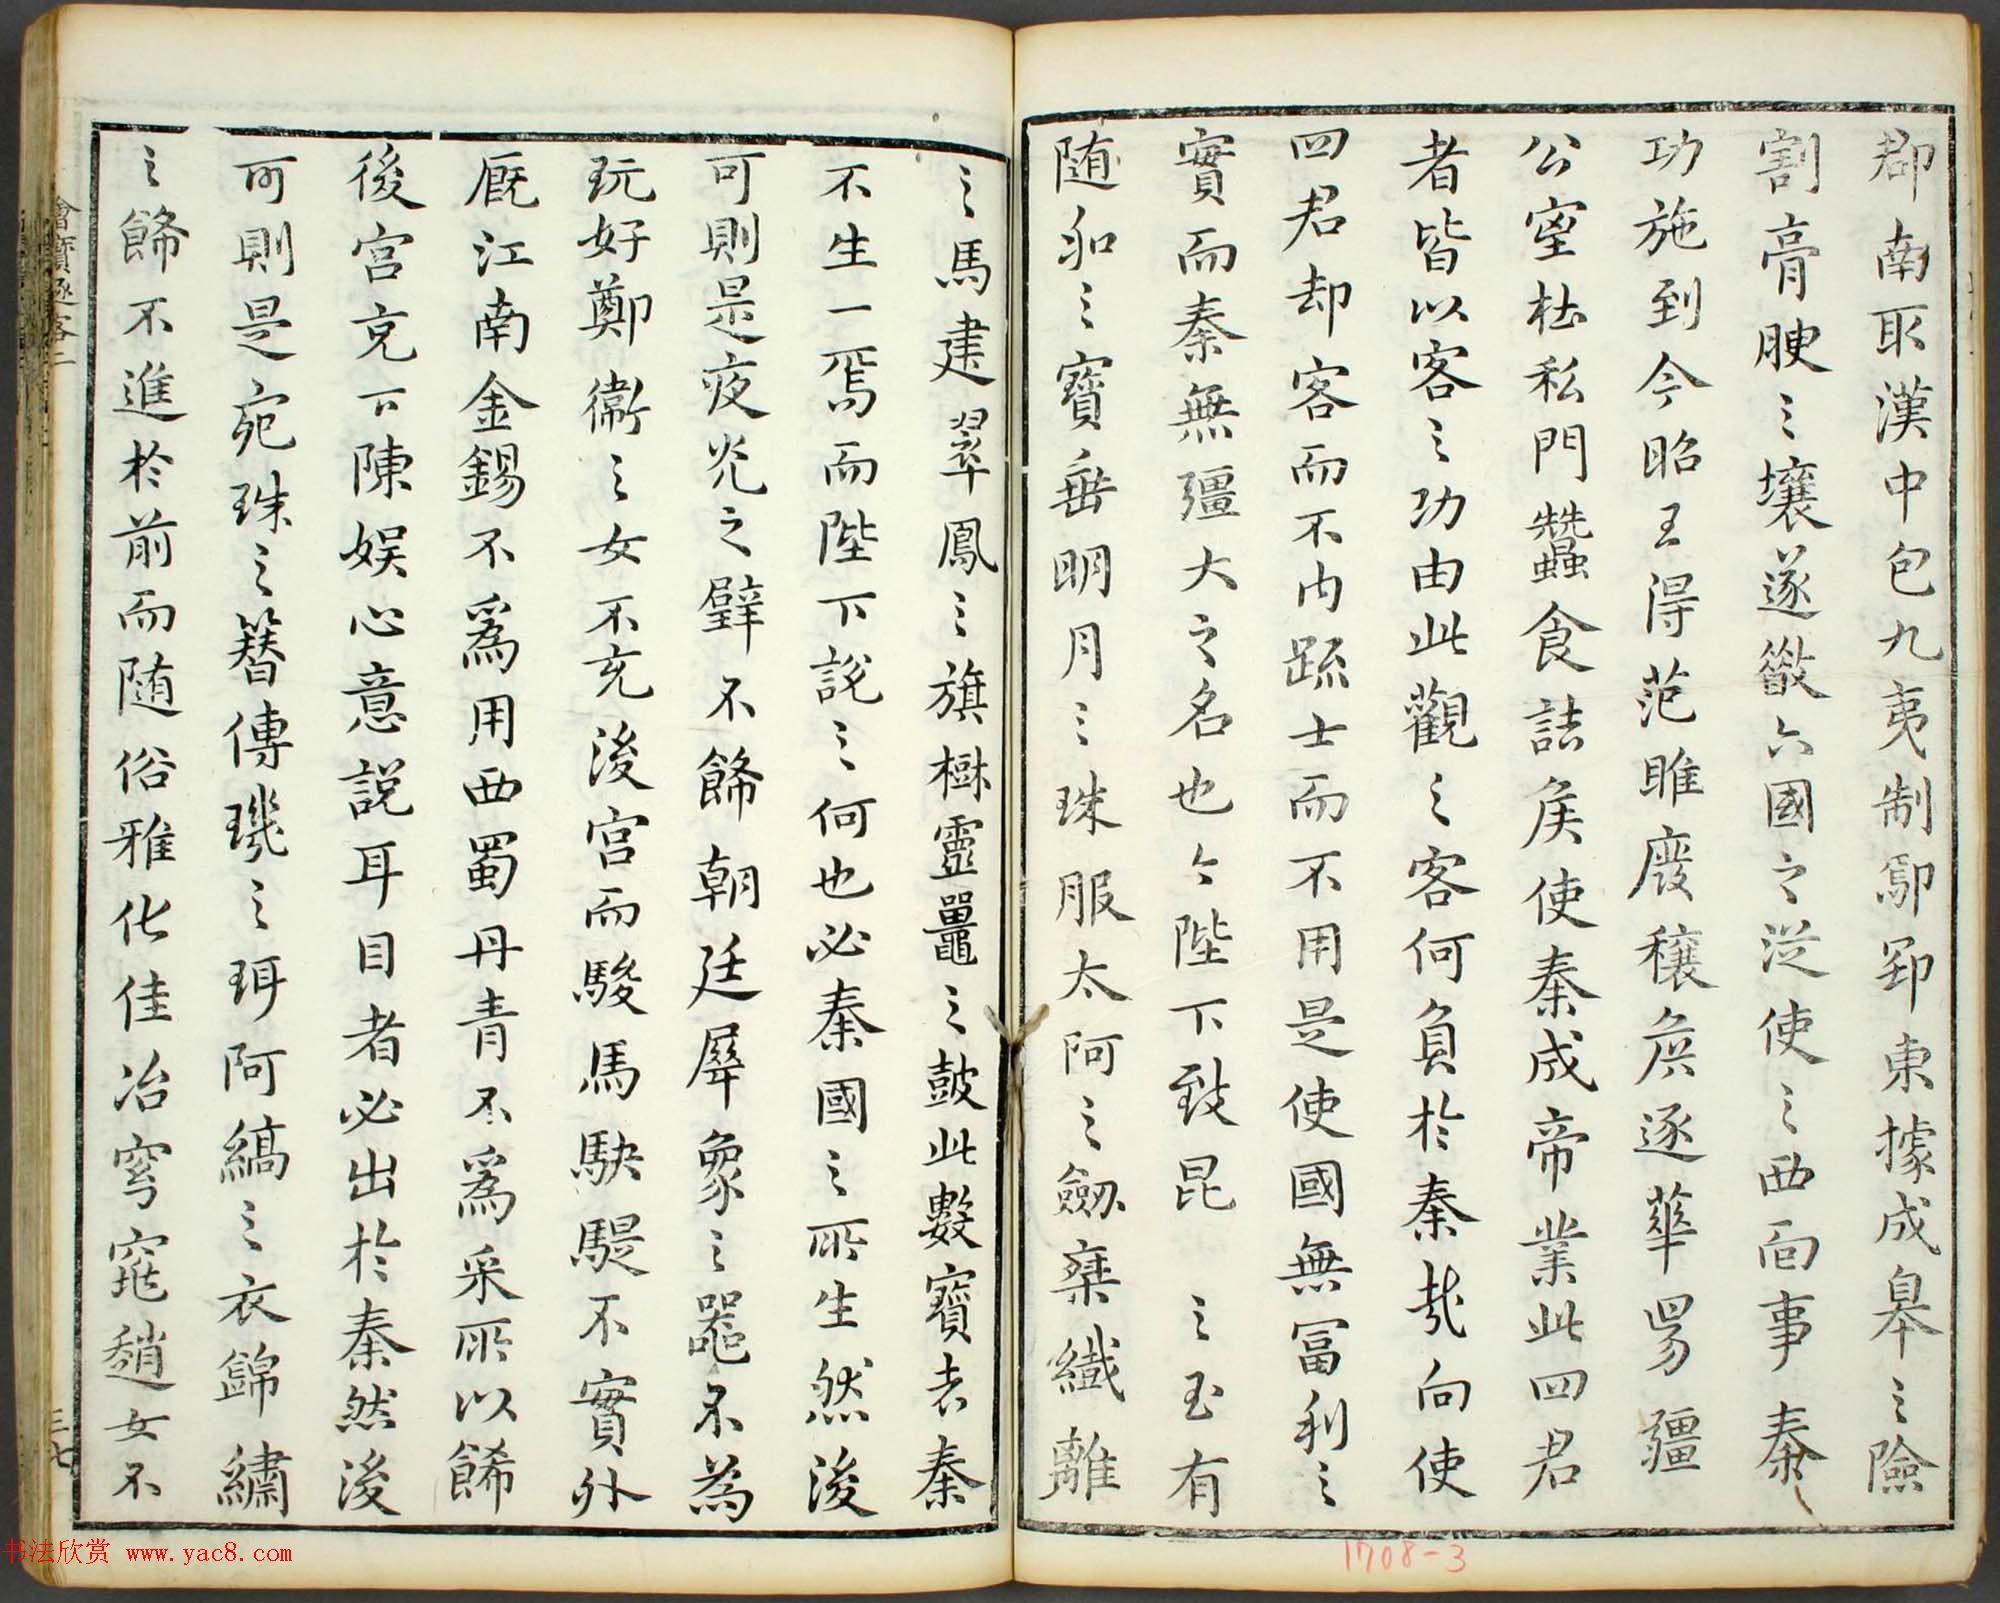 郡南取漢中包九夷制鄢郢東據成皋之險
割膏腴之壤遂散六國之從使之西面事秦
功施到今昭王得范雎廢穰侯逐華陽彊
公室杜私門蠶食諸侯使秦成帝業此四君
者皆以客之功由此觀之客何負於秦哉向使
四君却客而不内踈士而不用是使國無富利之
實而秦無彊大之名也今陛下致昆之玉有
随和之寶垂明月之珠服太阿之劔乗纖離
之馬建翠鳳之旗樹靈鼉之鼓此數寶者秦
不生一焉而陛下說之何也必秦國之所生然後
可則是夜光之璧不餙朝廷犀象之器不為
玩好鄭衞之女不充後宫而駿馬駃騠不實外
厩江南金錫不爲用西蜀丹青不爲采所以餙
後宫充下陳娱心意説耳目者必出於秦然後
可則是宛珠之簪傅璣之珥阿縞之衣錦繡
之餙不進於前而随俗雅化佳冶窈窕趙女不
三七
1708-3
书法欣赏 www.yac8.com